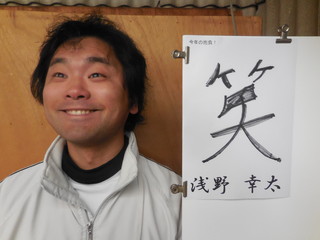 今年の抱負！
笑
浅野 幸太